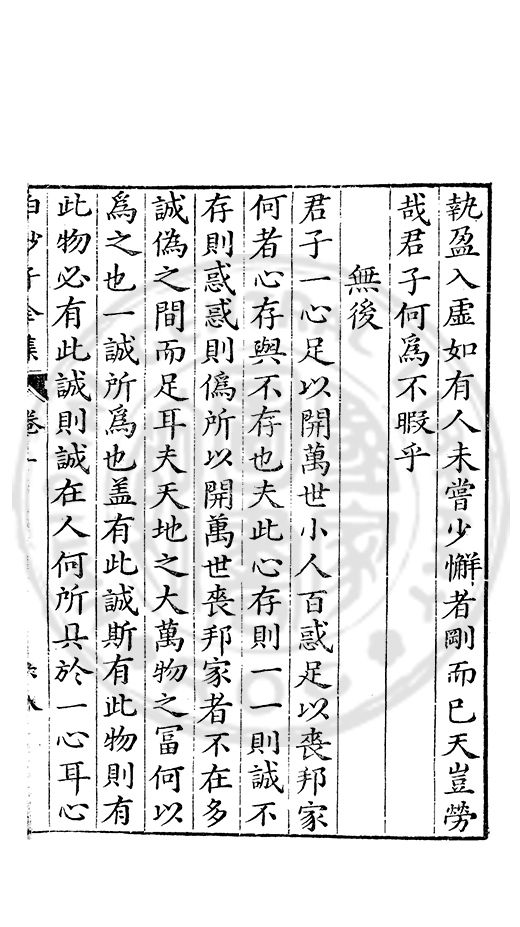 執盈入虛如有人未嘗少懈者剛而已天豈勞
哉君子何爲不暇乎
無後
君子一心足以開萬世小人百惑足以喪邦家
何者心存與不存也夫此心存則一一則誠不
存則惑惑則僞所以開萬世喪邦家者不在多
誠僞之間而足耳夫天地之大萬物之冨何以
爲之也一誠所爲也盖有此誠斯有此物則有
此物必有此誠則誠在人何所具於一心耳心
白沙子全集 卷一